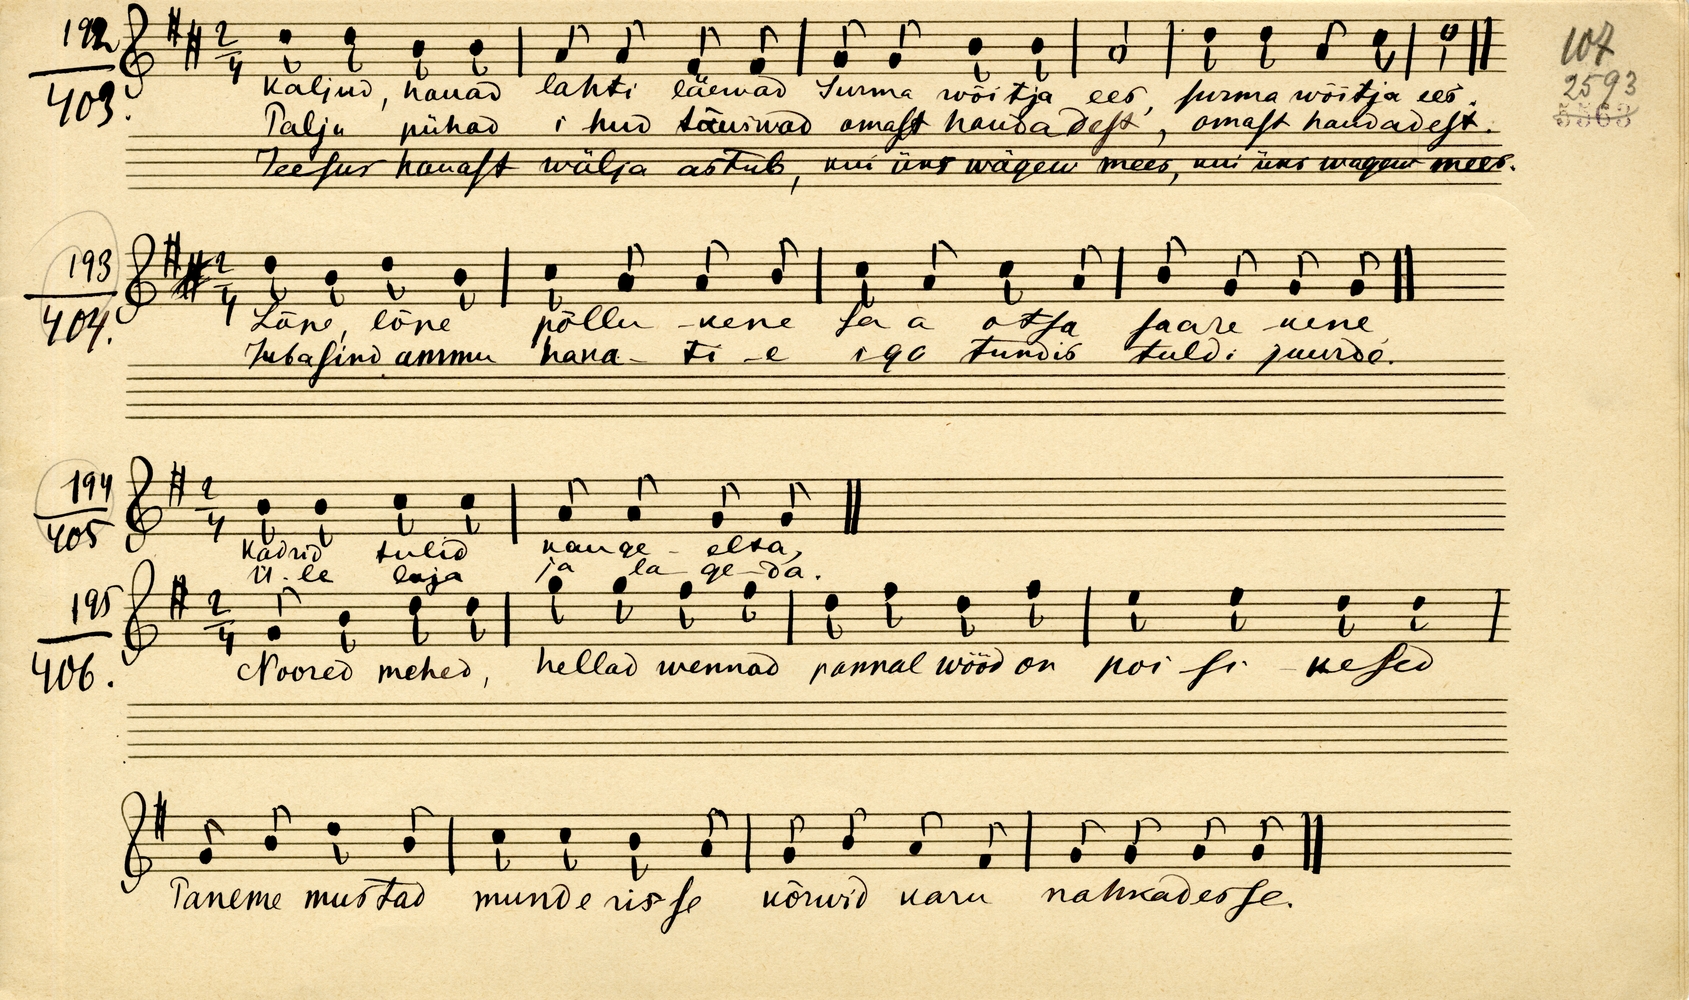 192
403.
2/4
107
2593
5563
Kaljud, hauad lahti läewad Surma wõitja ees, surma wõitja ees.
Palju pühad ihud tõusiwad omast haudadest, omast haudadest.
Jeesus hauast wälja astub, kui üks wägew mees, kui üks wägew mees.
193
404.
2/4
Lõne, lõne põllu-kene sa a otsa saare-kene
Jubasind ammu haka-ti-e iga tundis tuldi juurde.
194
405
2/4
Kadrid tulid kauge-elta,
ü-le laja ja la-ge-da.
195
406.
2/4
Noored mehed, hellad wennad pannal wööd on poi si-kesed
Paneme mustad munderisse kõrwid karu nahkadesse.